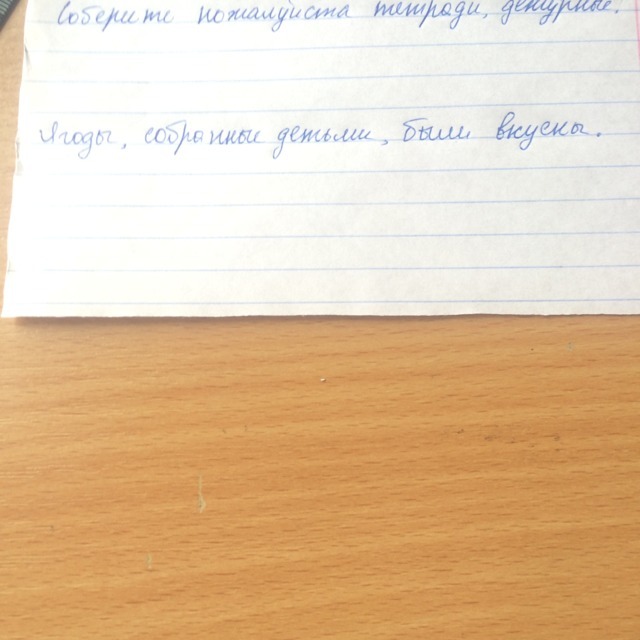 Соберите пожалуйста тетради, дежурные.
Ягоды, собранные детьми, были вкусны.